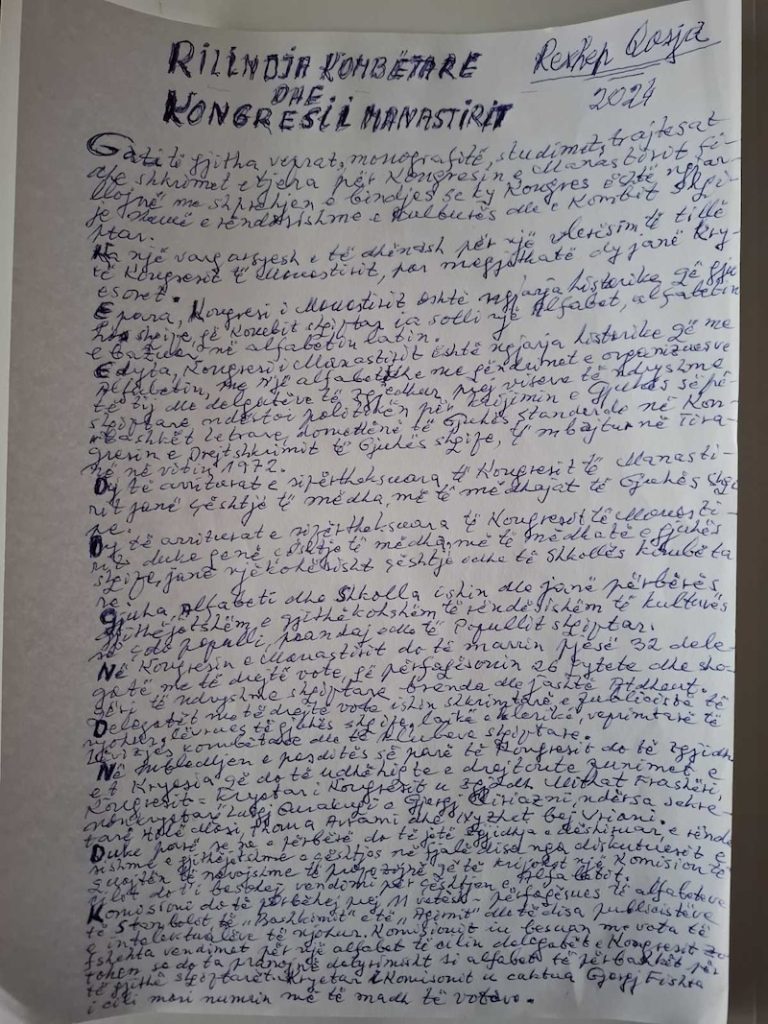 RILINDJA KOMBËTARE
DHE
KONGRESI I MANASTIRIT
Rexhep Qosja
2024
Gati të gjitha veprat, monografitë, studimet, trajtesat
dhe shkrimet e tjera për Kongresin e Manastirit fi-
llojnë me shprehjen e bindjes se ky Kongres është ngjar-
je shumë e rëndësishme e Kulturës dhe e Kombit Shqi-
ptar.
Ka një varg arsyesh e të dhënash për një vlerësim të tillë
të Kongresit të Manastirit, por megjithatë dy janë kry-
esoret.
E para, Kongresi i Manastirit është ngjarja historike që gju
hës shqipe, që Kombit shqiptar ia solli një Alfabet, alfabetin
e bazuar në alfabetin latin.
E dyta, Kongresi i Manastirit është ngjarja historike që me
Alfabetin, me një alfabet dhe me qëndrimet e organizuesve
të tij dhe delegatëve të zgjedhur prej viseve të ndryshme
shqiptare ndërtoi politikën për krijimin e Gjuhës së pë-
rbashkët letrare, domethënë të Gjuhës standarde në Kon-
gresin e Drejtshkrimit të Gjuhës shqipe, të mbajtur në Tira-
në në vitin 1972.
Dy të arriturat e sipërtheksuara të Kongresit të Manasti-
rit janë çështje të mëdha, më të mëdhajat të Gjuhës Shqi
pe.
Dy të arriturat e sipërtheksuara të Kongresit të Manasti-
rit duke qenë çështje të mëdha, më të mëdhatë e gjuhës
shqipe, janë njëkohësisht çështje edhe të Shkollës kombëta
re.
Gjuha, Alfabeti dhe Shkolla ishin dhe janë përbërës
gjithëjetshëm e gjithëkohshëm të rëndësishëm të kulturës
së çdo populli, prandaj edhe të Popullit shqiptar.
Në Kongresin e Manastirit do të marrin pjesë 32 dele-
gatë me të drejtë vote, që përfaqësonin 26 qytete dhe sho-
qëri të ndryshme shqiptare brenda dhe jashtë Atdheut.
Delegatët me të drejtë vote ishin shkrimtarë e publicistë të
njohur, lëvrues të gjuhës shqipe, laikë e klerikë, veprimtarë të
Lëvizjes kombëtare dhe të klubeve shqiptare.
Në mbledhjen e pasditës së parë të Kongresit do të zgjidh
et Kryesia që do të udhëhiqte e drejtonte punimet e
Kongresit - Kryetar i Kongresit u zgjodh Mithat Frashëri,
nënkryetarë Luigj Gurakuqi e Gjergj Qiriazi, ndërsa sekre-
tarë Hilë Mosi, Thoma Avrami dhe Nyzhet bej Vrioni.
Duke parë se sa e përbërë do të jetë zgjidhja e dëshiruar, e rënde
sishme e gjithëjetshme e çështjes në fjalë disa nga diskutuesit e
quajtën të nevojshme të propozojnë që të krijohet një Komision të
cilit do t'i besohej vendimi për çështjen e Alfabetit.
Komisioni do të përbëhej prej 11 vetësh - përfaqësues të alfabeteve
të Stambollit të "Bashkimit" të "Agimit" dhe të disa publicistëve
e intelektualëve të njohur. Komisionit iu besuan me vota të
fshehta vendimet për një alfabet të cilin delegatët e Kongresit zo
tohen se do ta pranojnë detyrimisht si alfabet të përbashkët për
të gjithë shqiptarët. Kryetar i Komisionit u caktua Gjergj Fishta
i cili mori numrin më të madh të votave.